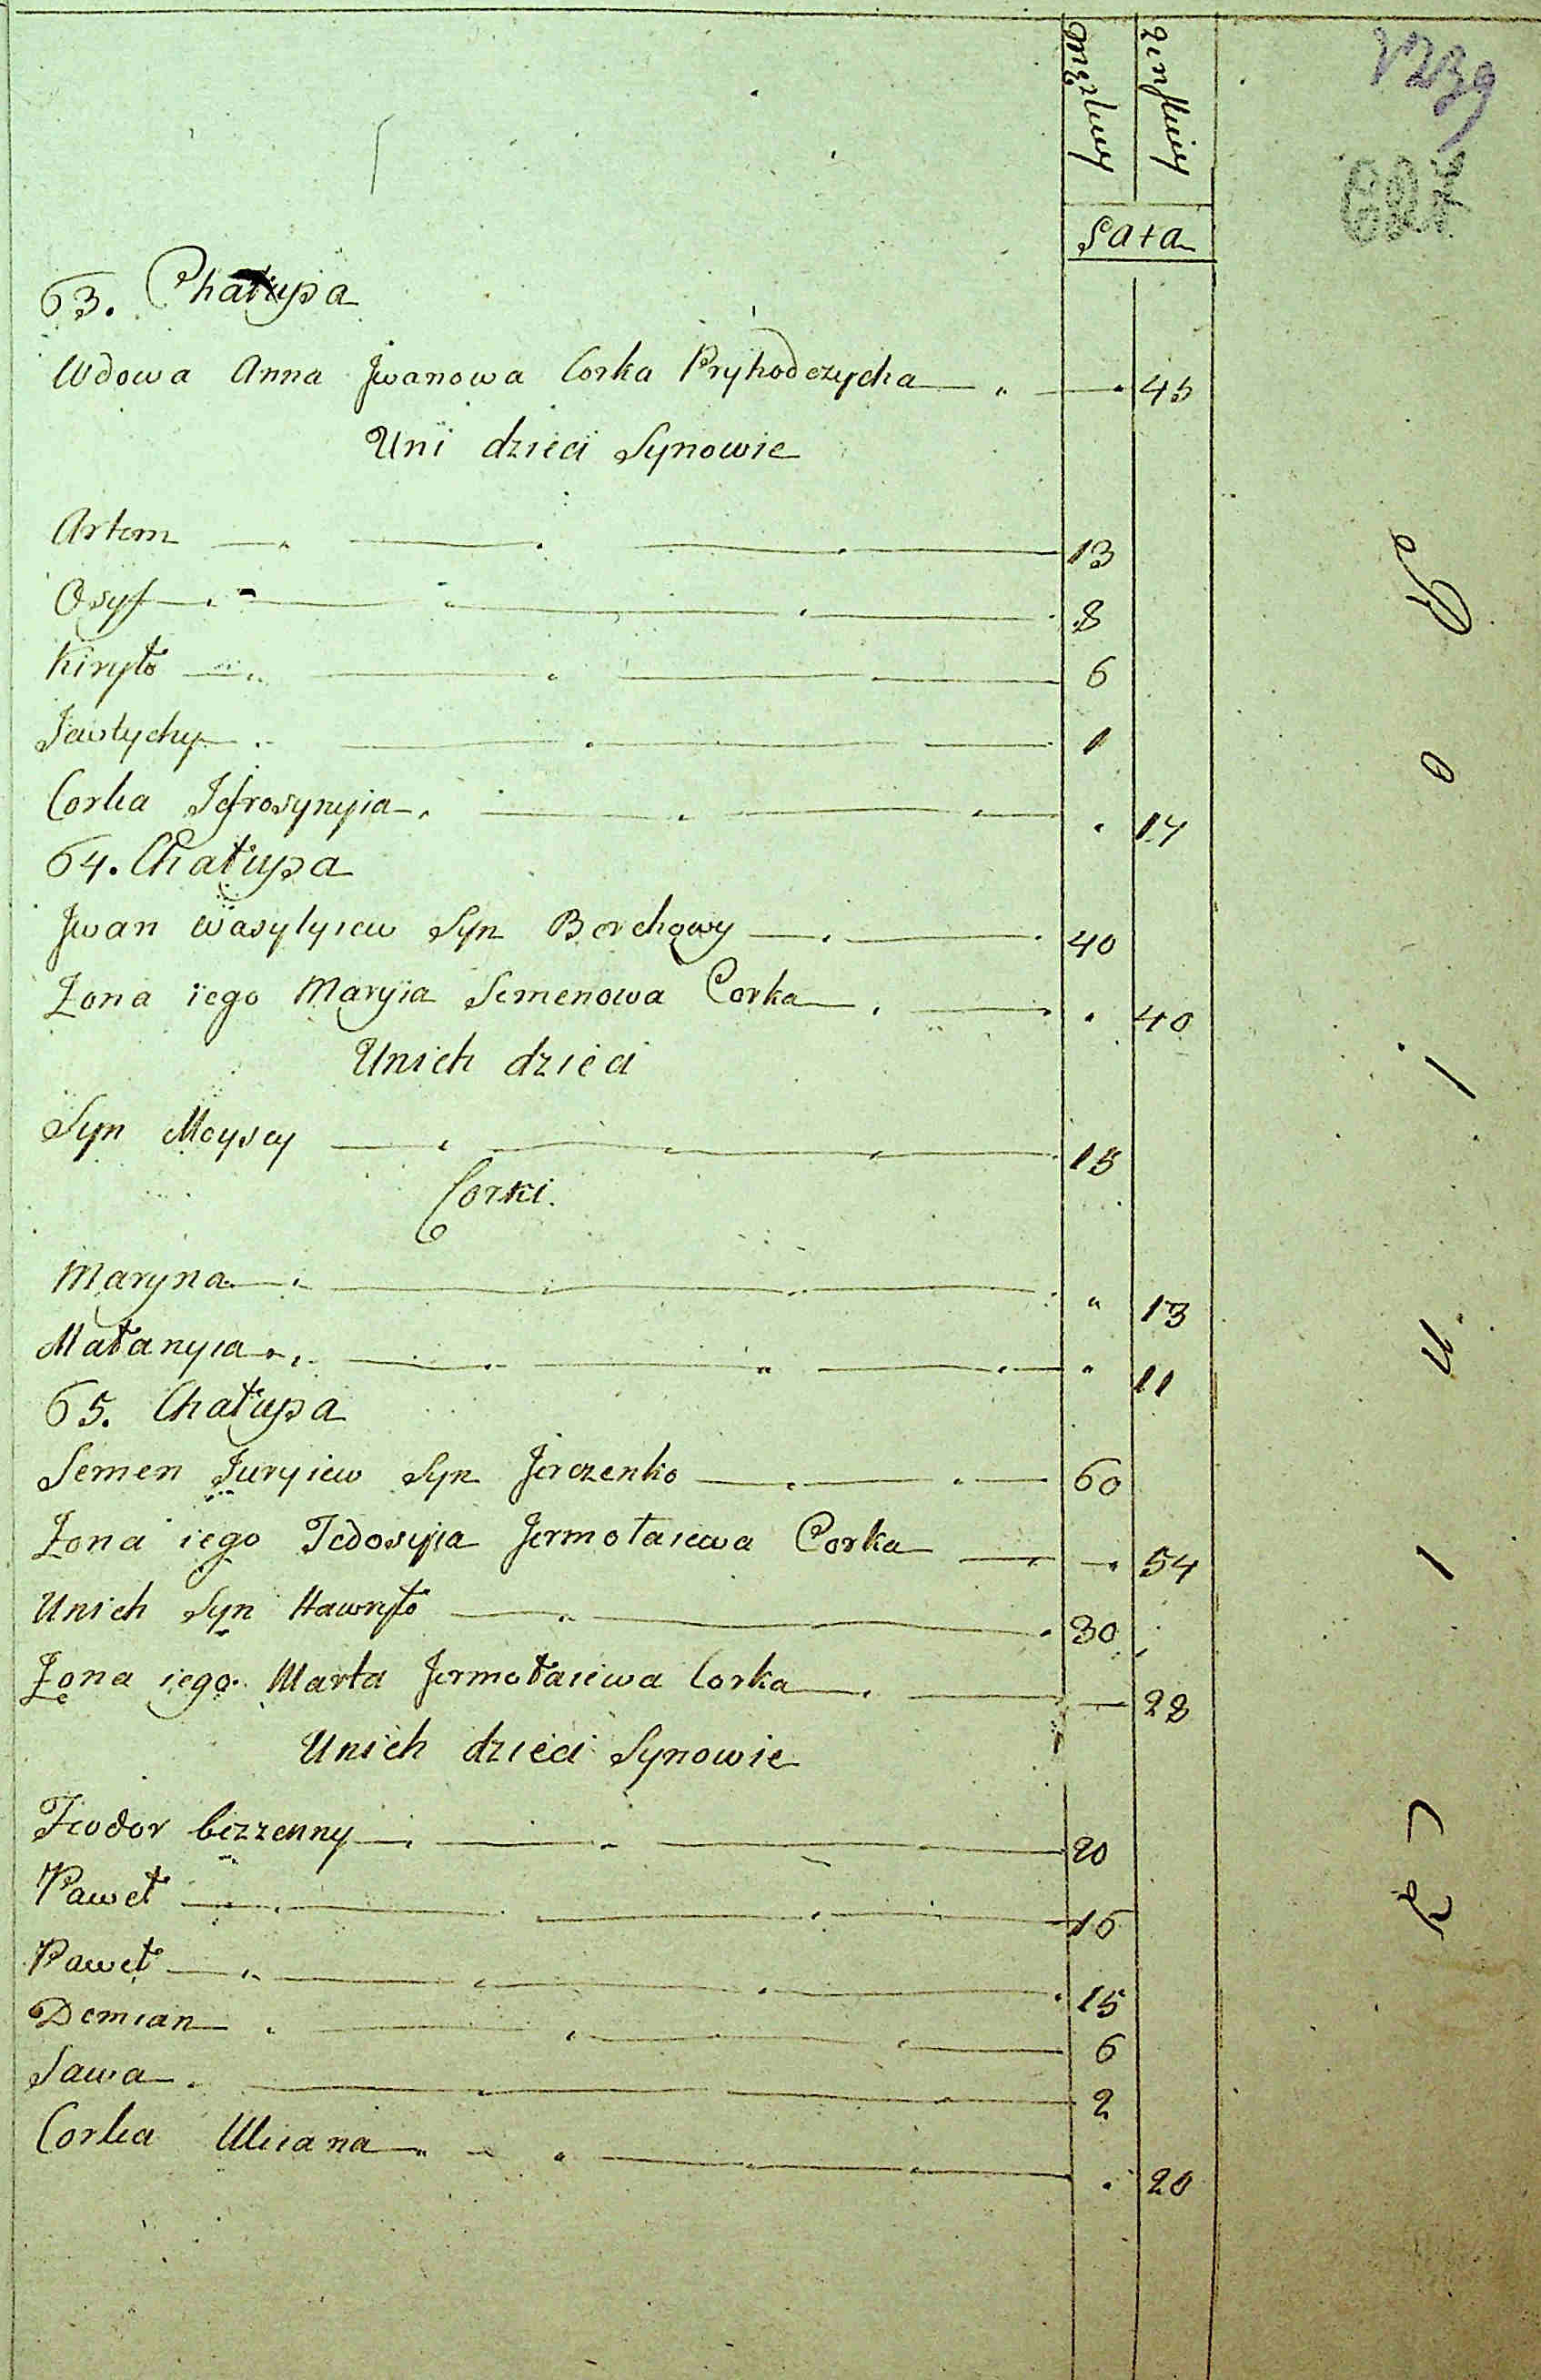 Męzkiey
Zenskiey
Lata
63. Chałupa
Wdowa Anna Jwanowa Corka Pryhodczycha 45
Uni dzieci Synowie
Artem 13
Osyf 8
Kiryło 6
Jawtychy 1
Corka Jefrosynyia 14
64. Chałupa
Jwan Wasylyiew Syn Borchowy 40
Żona iego Maryia Semenowa Corka 40
Unich dzieci
Syn Moysey 15
Corki
Maryna 13
Małanyia 11
65. Chałupa
Semen Juryiew Syn Jerczenko 60
Żona iego Fedosyia Jermołaiewa Corka 54
Unich Syn Hawryło 30
Żona iego Marta Jermołaiewa Corka 28
Unich dzieci Synowie
Feodor bezzenny 20
Paweł 16
Paweł 15
Demian 6
Sawa 2
Corka Uliana 20